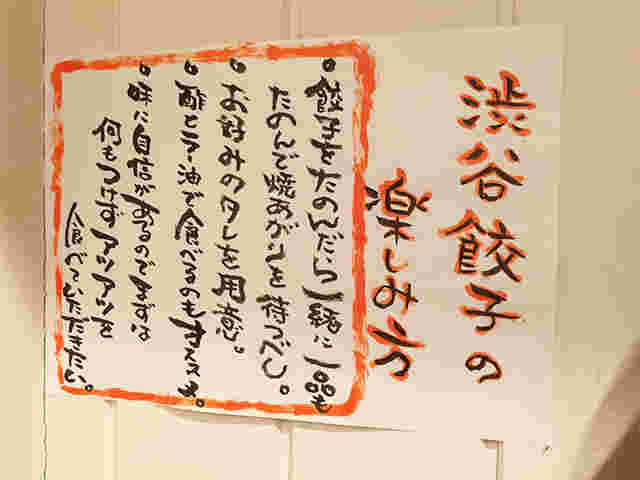 渋谷餃子の
楽しみ方
・餃子をたのんだら一緒に一品も
たのんで焼あがりを待つべし。
・お好みのタレを用意。
・酢とラー油で食べるのもオススメ。
・味に自信があるのでまずは
何もつけずアツアツを
食べていただきたい。